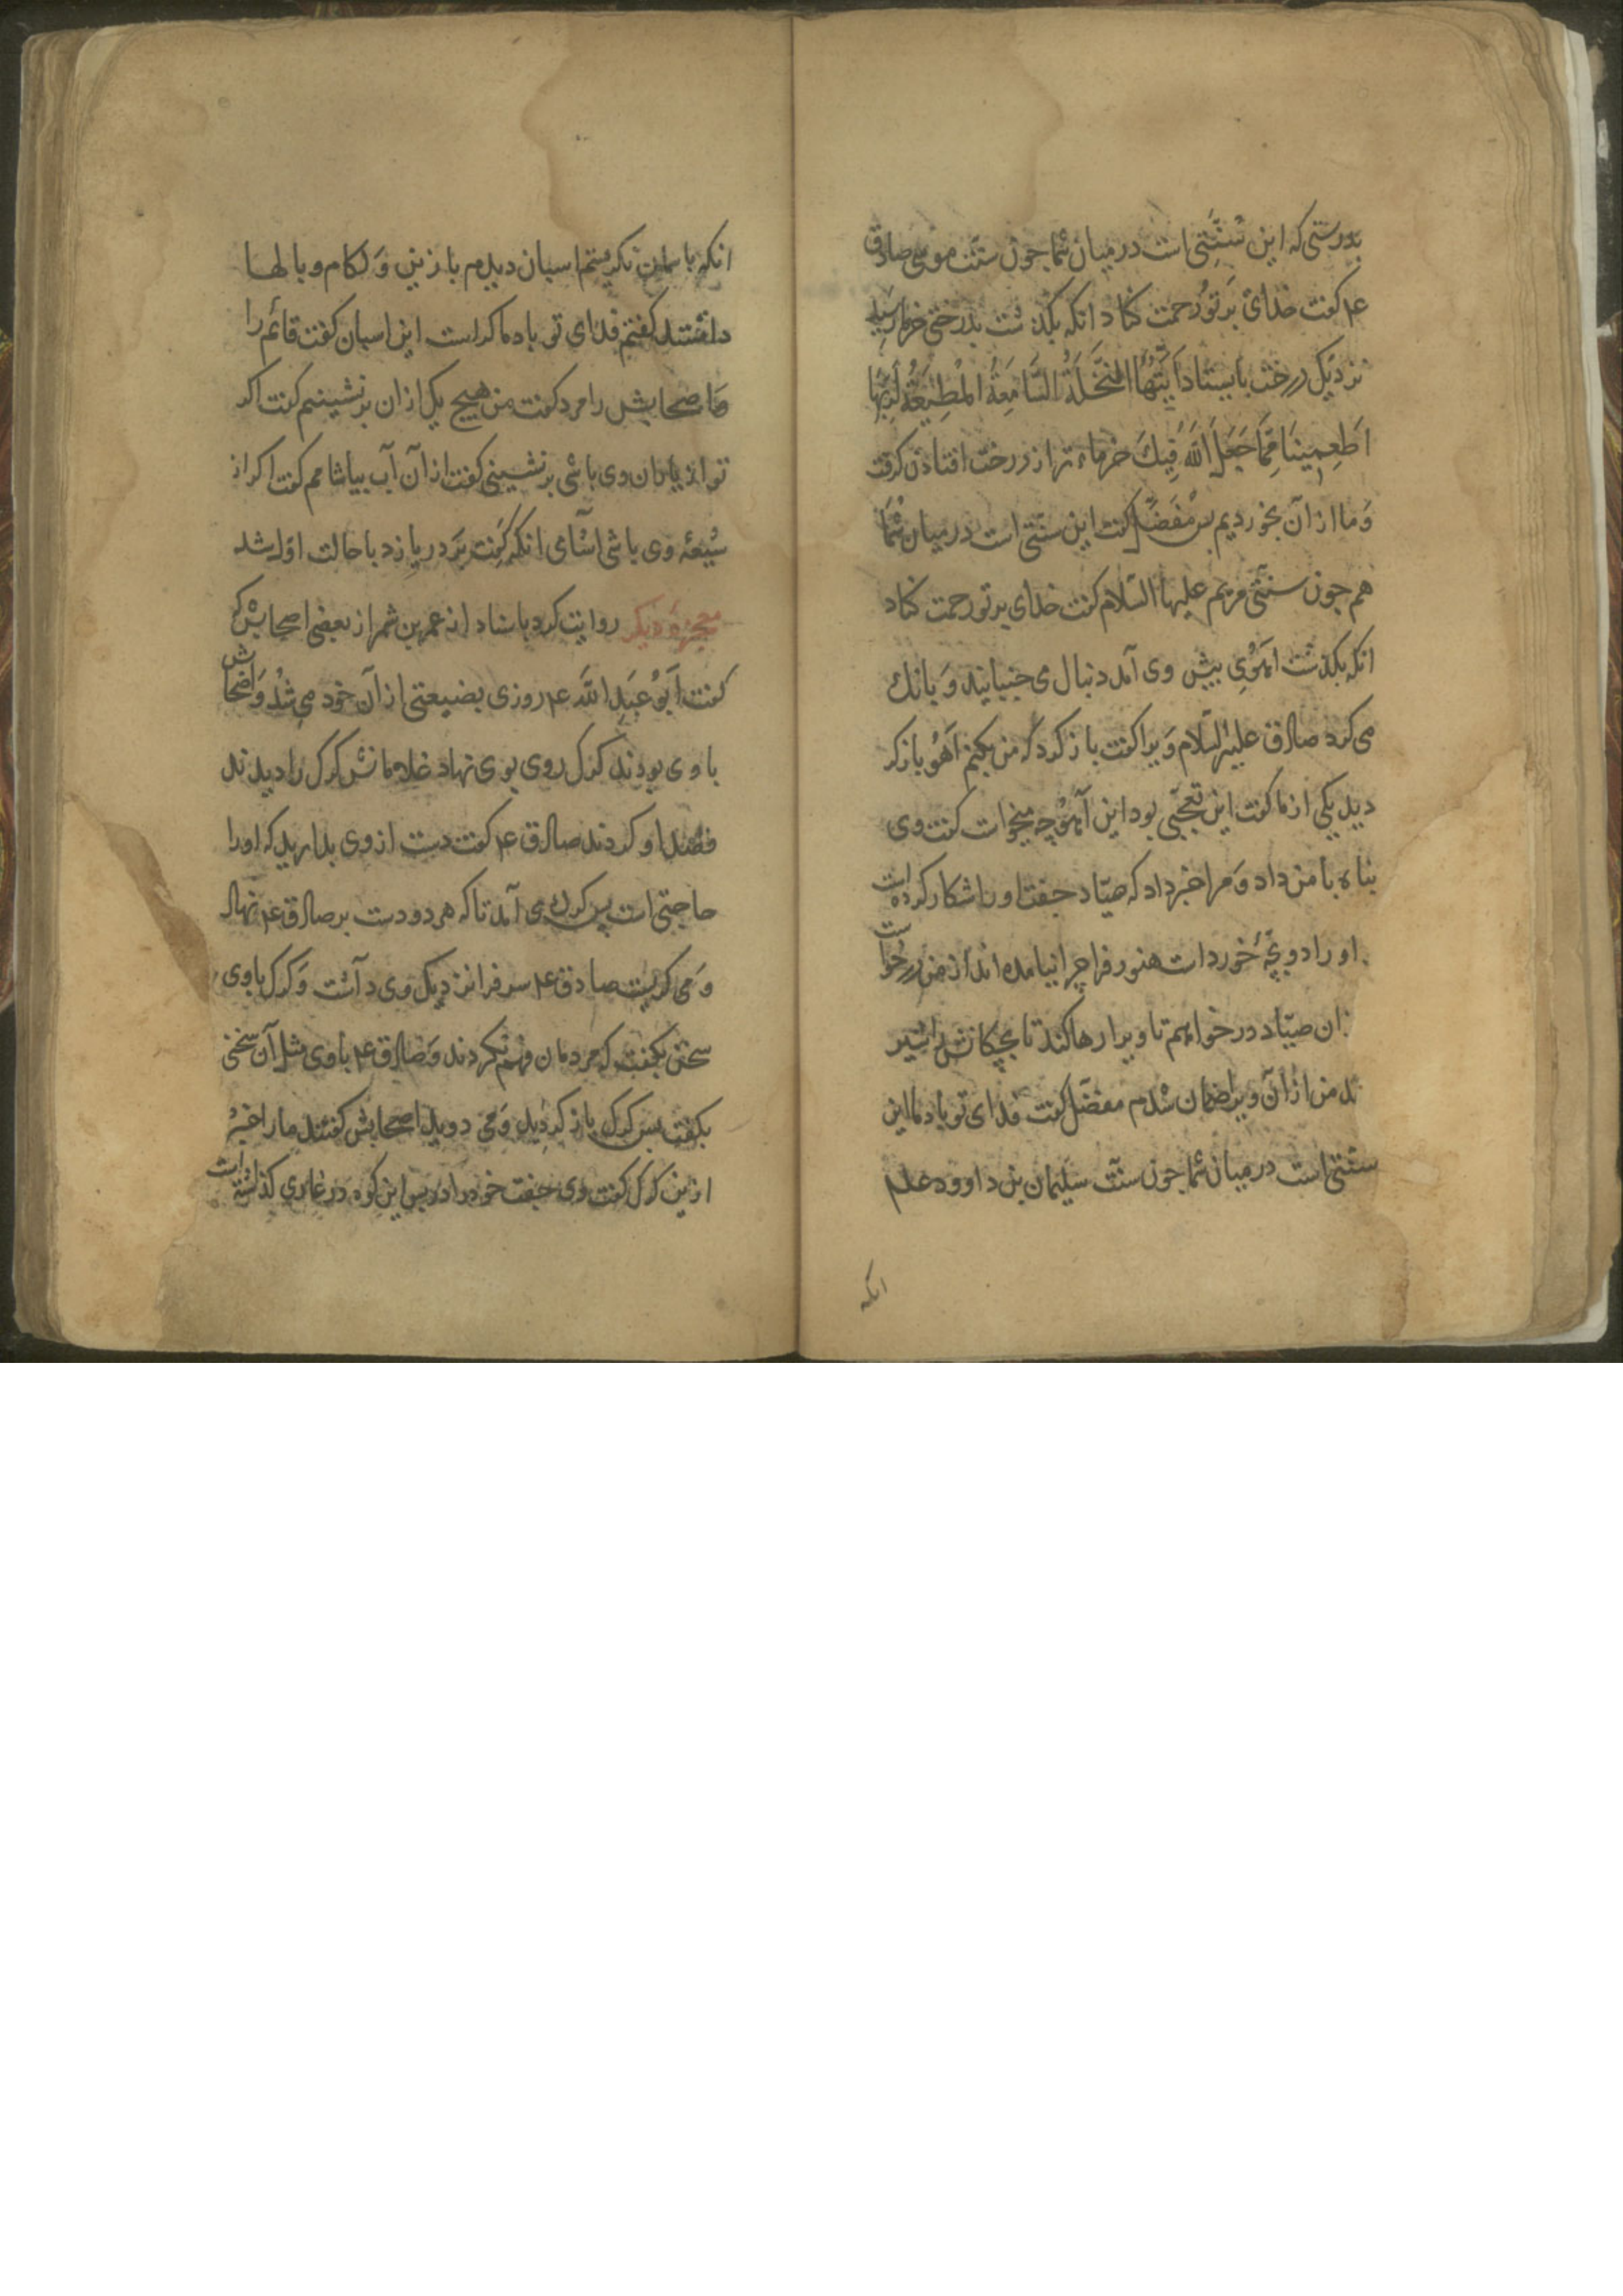 بدرستی که این سنتی است در میان شما چون سنت موسی صادق
ع گفت خدای بر تو رحمت کناد انکه بکذشت بدرختی خرما رسید
نزدیک درخت بایستاد اَیَّتُهَا النَّخْلَةُ السَّامِعَةُ الْمُطِیعَةُ لِرَبِّهَا
اَطْعِمِینَا مِمَّا جَعَلَ اللّٰهُ فِیكَ خرماء تر از درخت افتادن کرفت
وَ ما از آن بخوردیم بس مفضّل کفت این سنّتی است در میان شما
هم جون سنتی مریم علیها السّلام کفت خدای بر تو رحمت کناد
انکه بکذشت اهوی بیش وی آمد دنبال می جنبانید وَ بانك
می کرد صادق علیه السّلام ویرا کفت باز کرد که من بکنم آهو باز کر
دید یکی از ما کفت این تعجّبی بود این آهو چه میخواست کفت وی
بناه با من داد وَ مرا خبر داد که صیّاد جفت او را شکار کرده است
او را دو بچّهٔ خورد است هنوز فرا چرا نیامده اند از من درخواست
ان صیّاد درخواهم تا ویرا رها کند تا بچکانش را شیر
دهد من از آن ویرا ضمان شدم مفضّل کفت فدای تو باد ما این
سنتی است در میان شما جون سنّت سلیمان بن داوود علم
انکه
انکه باسمان نکریستم اسبان دیدم با زین وَ لکام و بالها
داشتند کفتم فدای تو باد ما کراست این اسبان کفت قائم را
وَ اصحابش را مرد کفت من هیج یک از ان برنشینم کفت اکر
تو از یاران وی باشی برنشینی کفت از آن آب بیاشامم کفت اکر از
شیعهٔ وی باشی اشامی انکه کفت بزد دریا زد با حالت اوّل شد
معجزهٔ دیکر روایت کرد باسناد از عمر بن شمر از بعضی اصحابش که
کفت اَبُو عَبدِ اللّٰه ع روزی بضیعتی از آن خود می شد وَ اصحابش
با وی بودند کرک روی بوی نهاد غلامانش کرک را دیدند
قصد او کردند صادق ع کفت دست از وی بدارید که او را
حاجتی است بس کرک می آمد تا که هر دو دست بر صادق ع نهاد
وَ می کریست صادق ع سر فرا نزدیک وی داشت وَ کرک با وی
سخن بکفت که مردمان فهم نکردند وَ صادق ع با وی مثل آن سخن
بکفت بس کرک باز کردید وَ می دوید اصحابش کفتند ما را خبر ده
ازین کرک کفت وی جفت خود را در بس این کوه در غاری کذاشته است